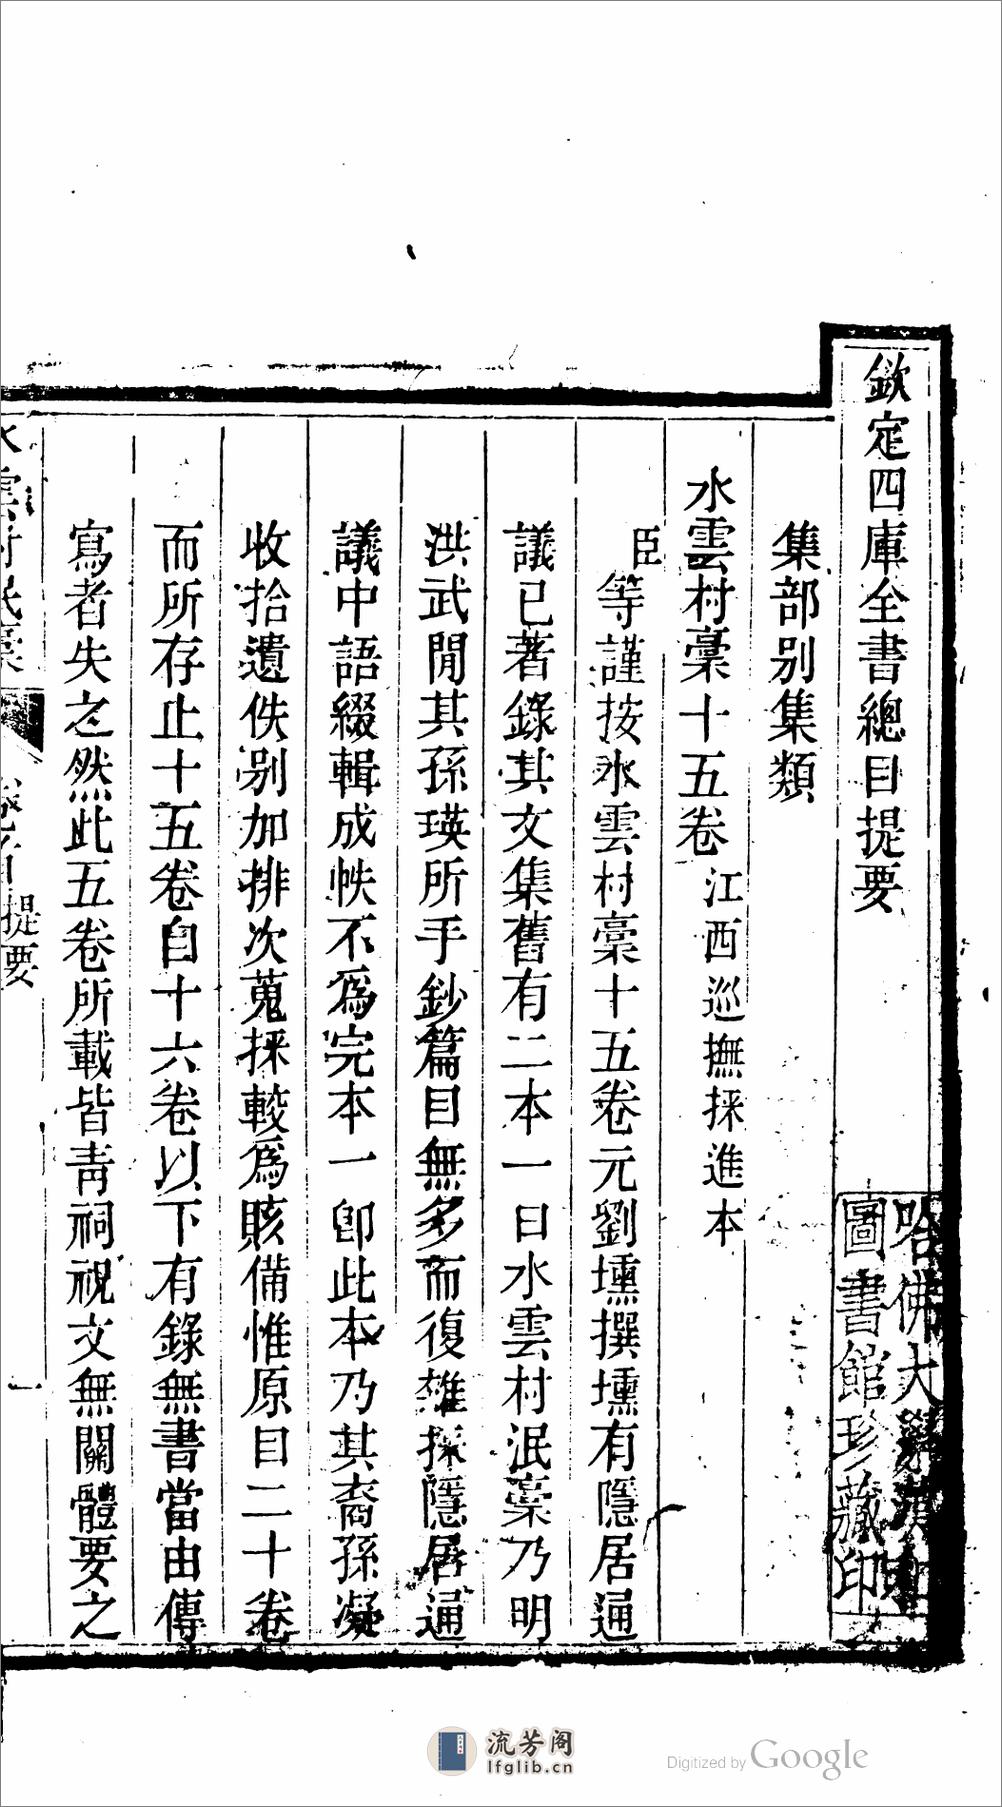 欽定四庫全書總目提要
集部別集類
水雲村稾十五卷 江西巡撫採進本
臣等謹按水雲村稾十五卷元劉壎撰壎有隱居通
議已著錄其文集舊有二本一曰水雲村泯稾乃明
洪武閒其孫瑛所手鈔篇目無多而復雜採隱居通
議中語綴輯成帙不爲完本一卽此本乃其裔孫凝
收拾遺佚别加排次蒐採較爲賅備惟原目二十卷
而所存止十五卷自十六卷以下有錄無書當由傳
寫者失之然此五卷所載皆靑祠祝文無關體要之
水雲村泯稾
提要
一
哈佛大
圖書館珍藏印
流芳阁
lfglib.cn
Digitized by Google